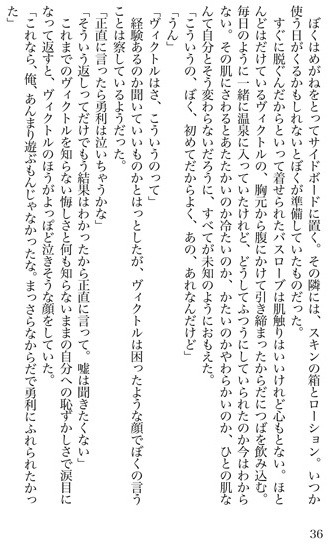 ぼくはめがねをとってサイドボードに置く。その隣には、スキンの箱とローション。いつか
使う日がくるかもしれないとぼくが準備していたものだった。
すぐに脱ぐんだからといって着せられたバスローブは肌触りはいいけれど心もとない。ほと
んどはだけているヴィクトルの、胸元から腹にかけて引き締まったからだにつばを飲み込む。
毎日のように一緒に温泉に入っていたけれど、どうしてふつうにしていられたのか今はわから
ない。その肌にさわるとあたたかいのか冷たいのか、かたいのかやわらかいのか、ひとの肌な
んて自分とそう変わらないだろうに、すべてが未知のようにおもえた。
「こういうの、ぼく、初めてだからよく、あの、あれなんだけど」
「うん」
「ヴィクトルはさ、こういうのって」
経験あるのか聞いていいものかとはっとしたが、ヴィクトルは困ったような顔でぼくの言う
ことは察しているようだった。
「正直に言ったら勇利は泣いちゃうかな」
「そういう返しってだけでもう結果はわかったから正直に言って。嘘は聞きたくない」
これまでのヴィクトルを知らない悔しさと何も知らないままの自分への恥ずかしさで涙目に
なって返すと、ヴィクトルのほうがよっぽど泣きそうな顔をしていた。
「これなら、俺、あんまり遊ぶもんじゃなかったな。まっさらなからだで勇利にふれられたかっ
た」
36